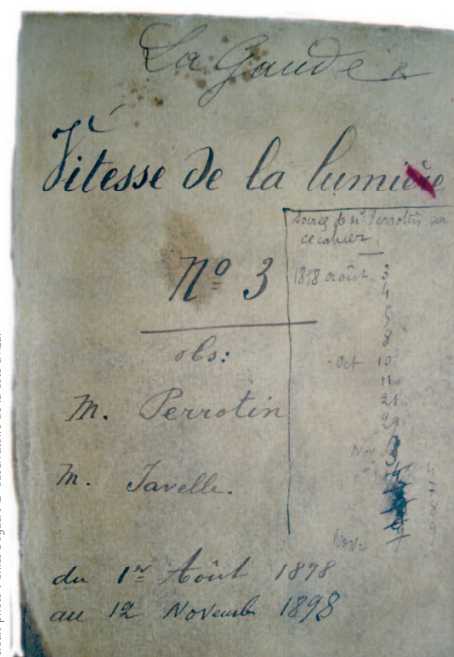 La Gaude
Vitesse de la lumière
Nº 3
obs:
M. Perrotin
M. Javelle.
du 1er Août 1898
au 12 Novembre 1898
de Mr Perrotin sur
ce cahier
1898 août 3
4
5
8
Oct 10
11
21
29
Nov
Nov.